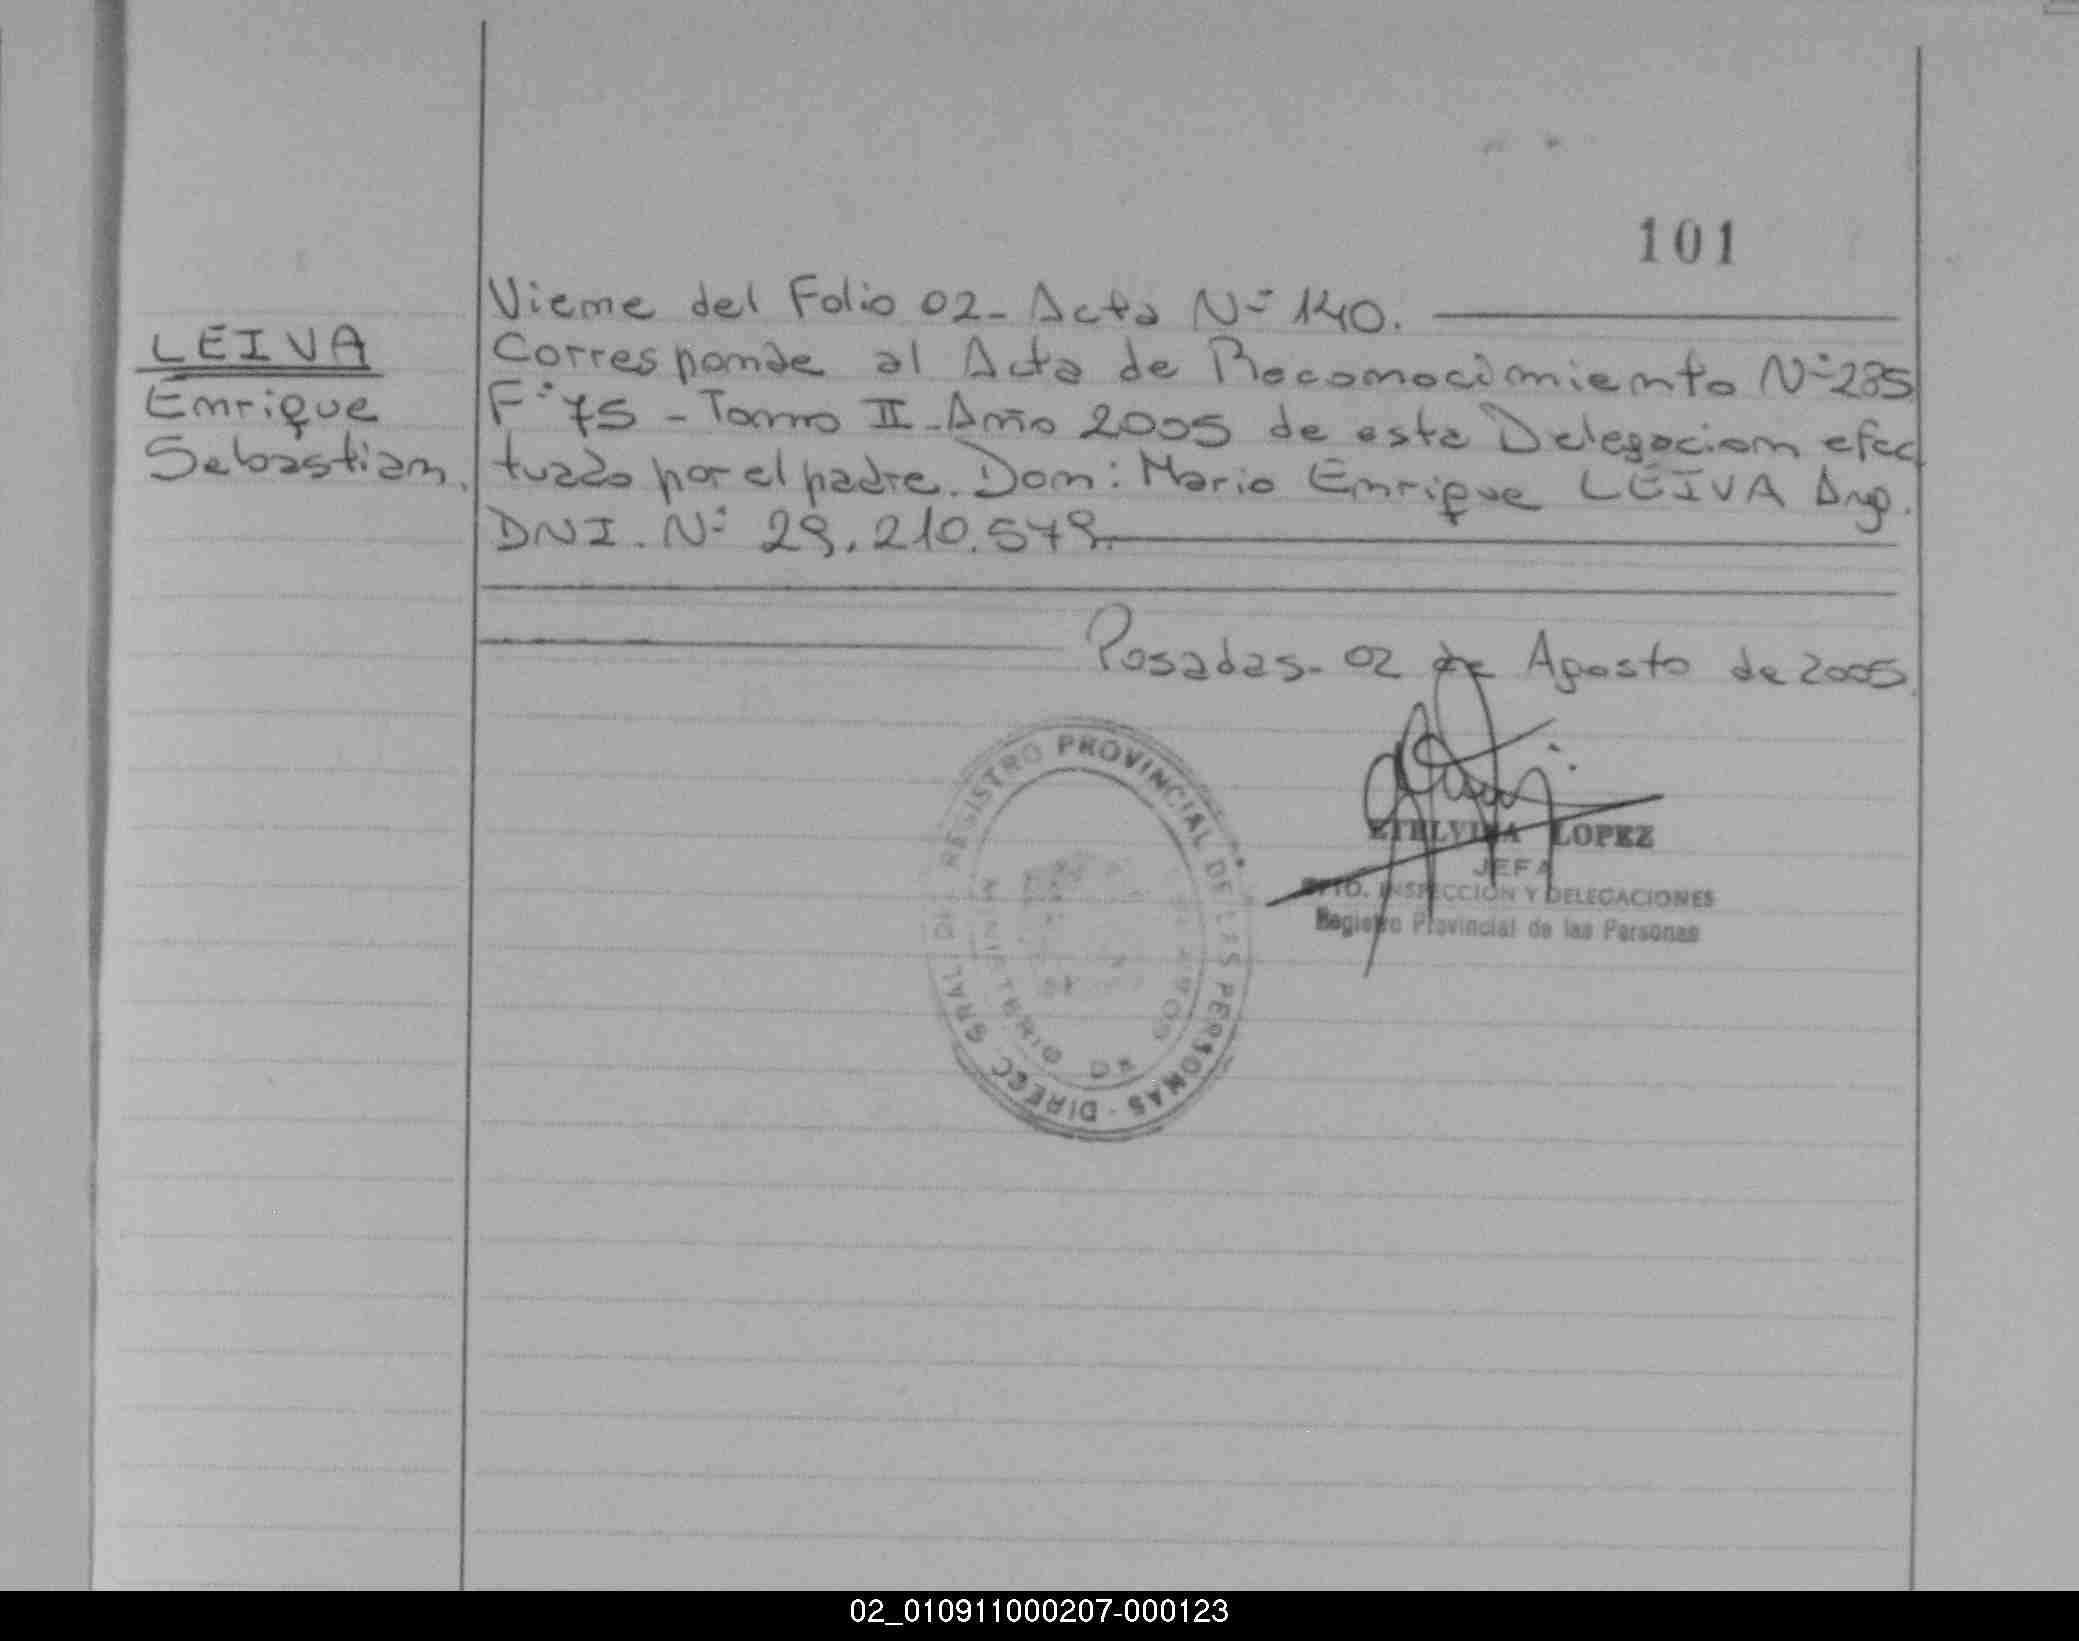 101
LEIVA
Enrique
Sebastian.
Viene del Folio 02- Acta Nº 140.
Corresponde al Acta de Reconocimiento Nº 285
Fº 75 - Tomo II - Año 2005 de esta Delegacion efec
tuado por el padre. Don: Mario Enrique LEIVA Arg.
DNI. Nº 29.210.579.
Posadas- 02 de Agosto de 2005.
REGISTRO PROVINCIAL DE LAS PERSONAS - DIRECC GRAL
ETELVINA LOPEZ
JEFA
DPTO. INSPECCION Y DELEGACIONES
Registro Provincial de las Personas
02_010911000207-000123